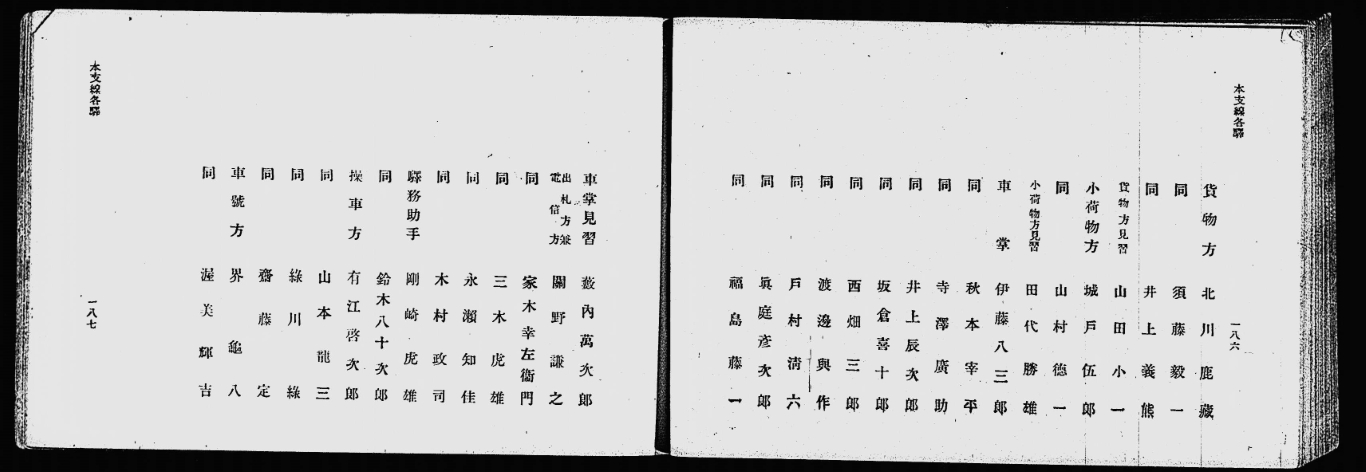 本支線各驛
貨物方 北川鹿藏
同 須藤毅一
同 井上義熊
貨物方見習 山田小一
小荷物方 城戸伍郎
同 山村德一
小荷物方見習 田代勝雄
車掌 伊藤八三郎
同 秋本宰平
同 寺澤廣助
同 井上辰次郎
同 坂倉喜十郎
同 西畑三郎
同 渡邊與作
同 戸村淸六
同 眞庭彦次郎
同 福島藤一
一八六
本支線各驛
車掌見習 藪內萬次郎
出札方兼電信方 關野謙之
同 家木幸左衞門
同 三木虎雄
同 永瀨知佳
同 木村政司
驛務助手 剛崎虎雄
同 鈴木八十次郎
操車方 有江啓次郎
同 山本龍三
同 綠川綠
同 齋藤定
車號方 界龜八
同 渥美輝吉
一八七